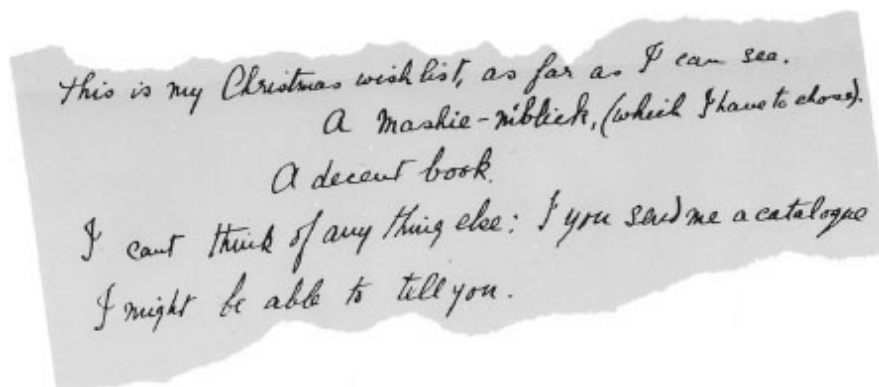 This is my Christmas wish list, as far as I can see.
A mashie-niblick, (which I have to chose).
A decent book.
I cant think of any thing else: I you send me a catalogue
I might be able to tell you.